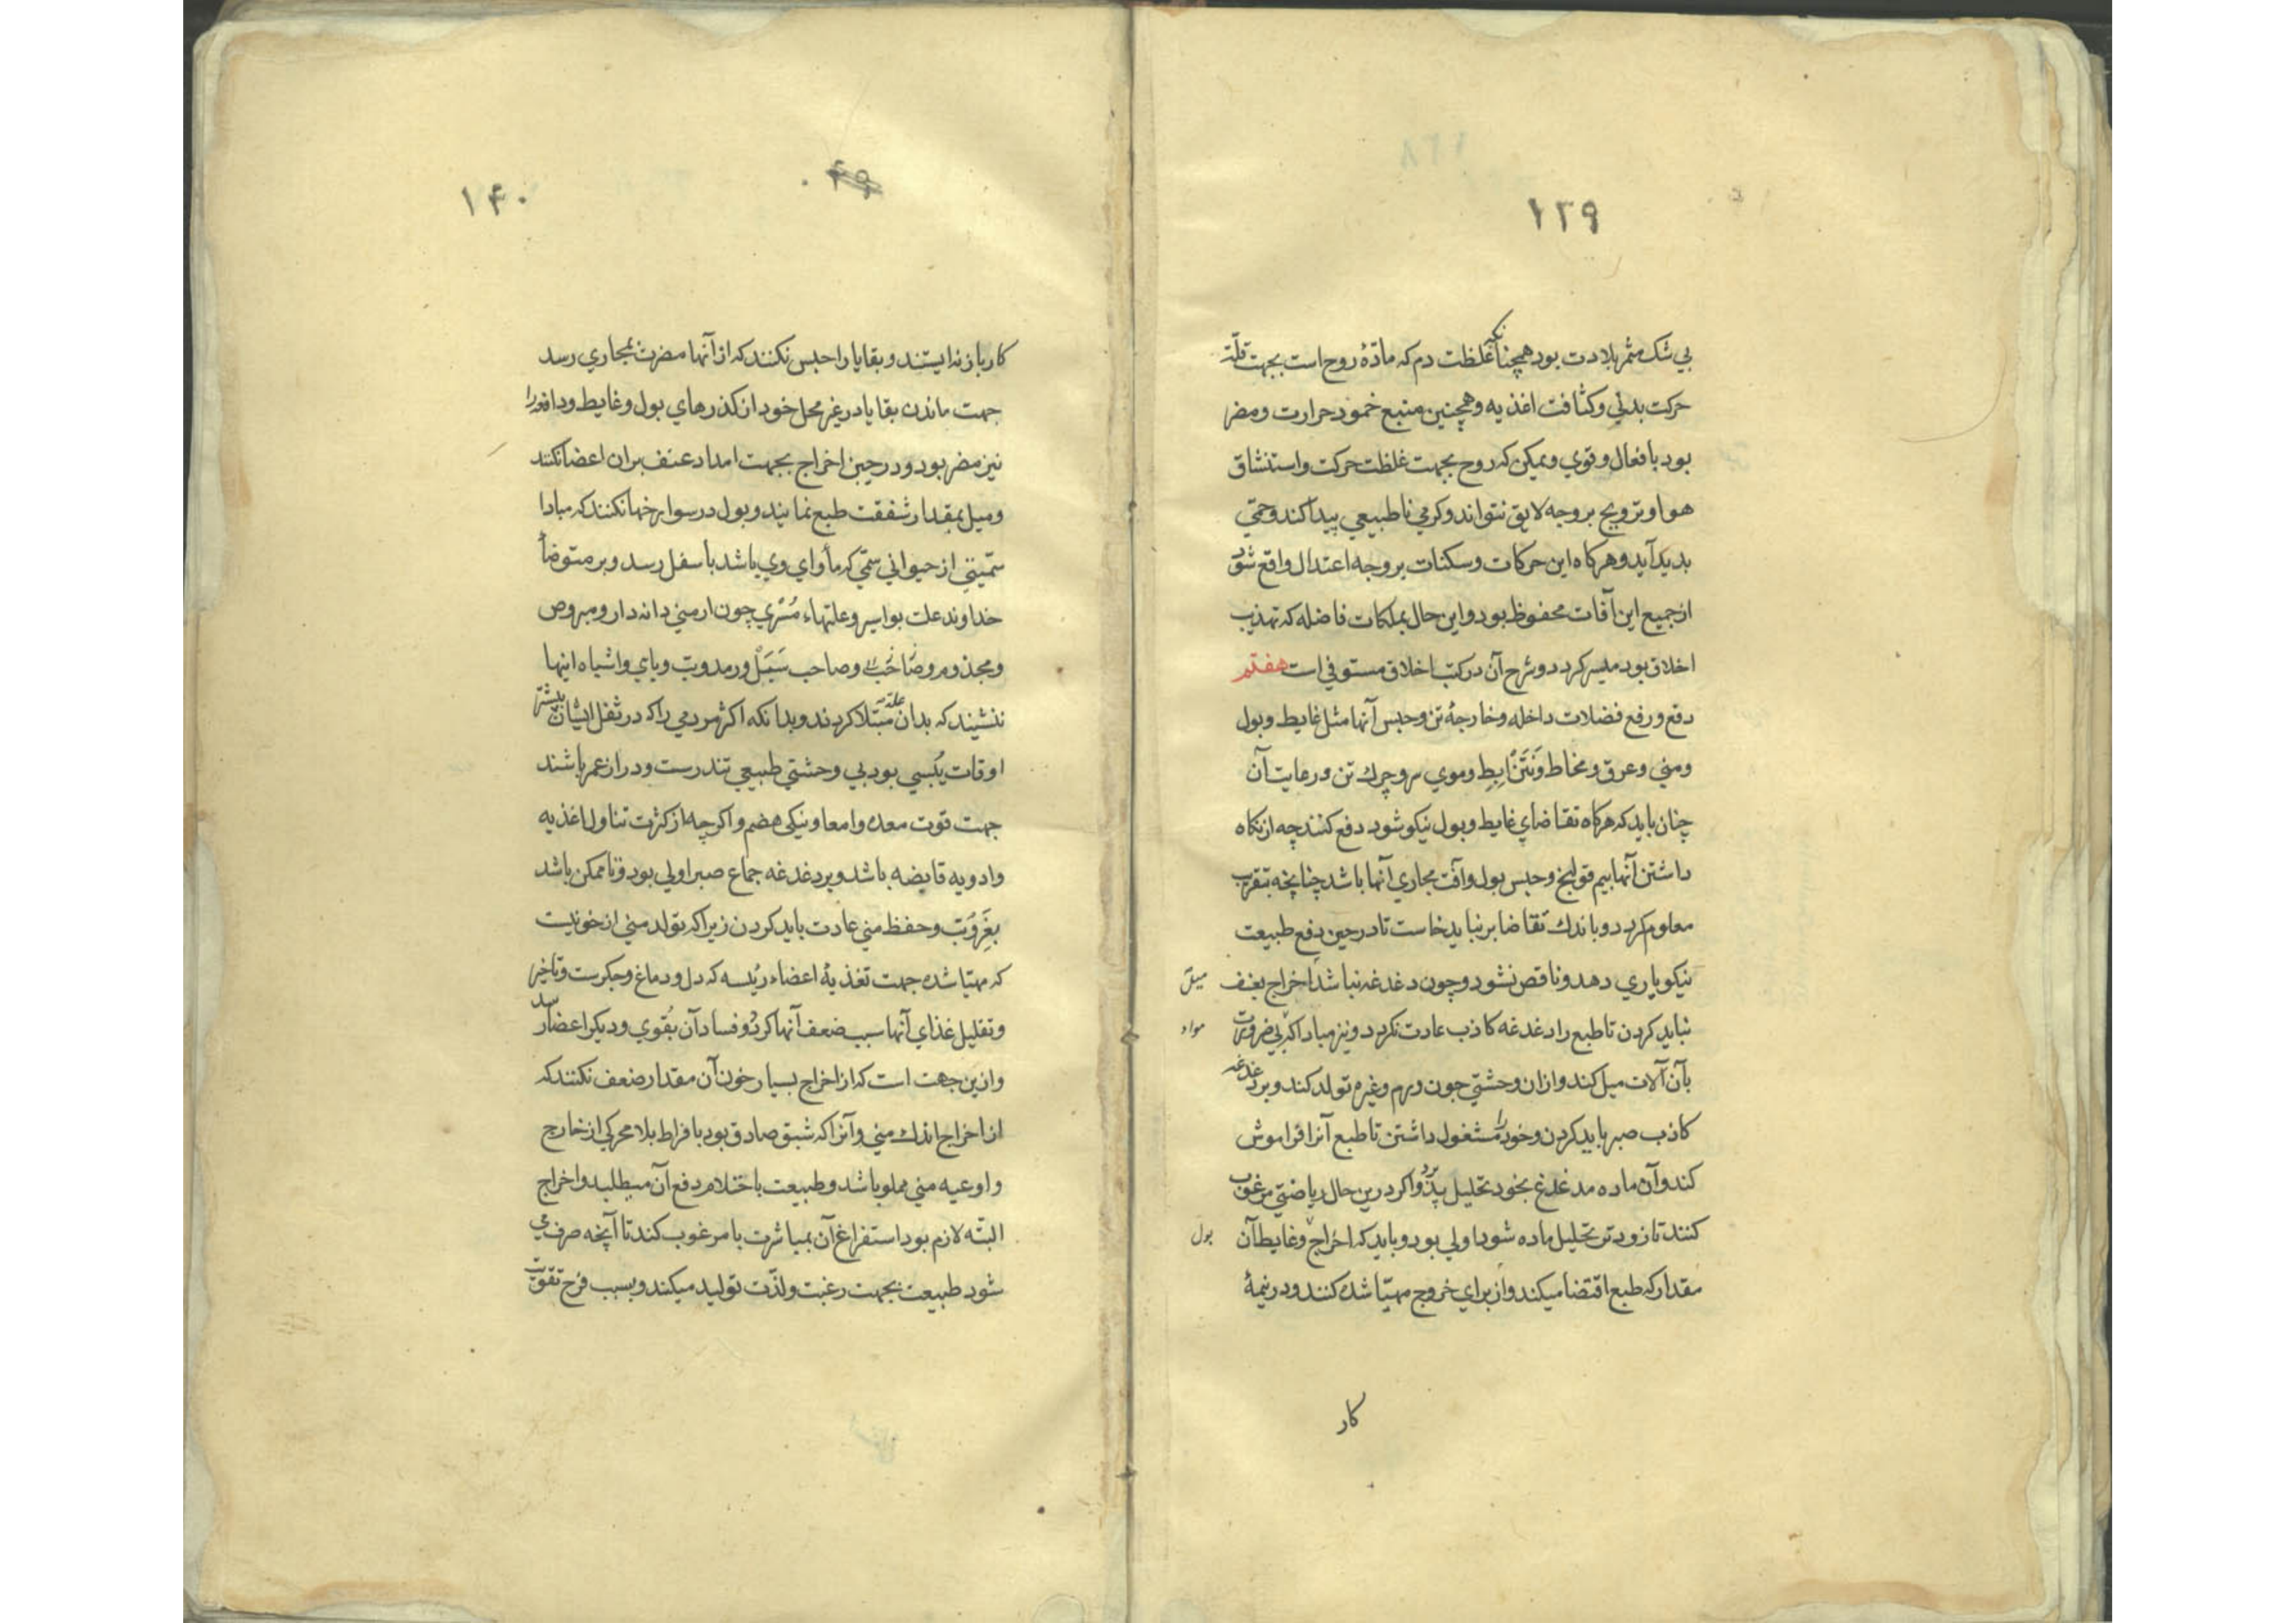 ۱۳۹
بی شک مثمر بلادت بود همچنانکه غلظت دم که مادّهٔ روح است بجهت قلّت
حرکت بدنی و کثافت اغذیه و همچنین متبع خمود حرارت و مضر
بود بافعال و قوی و ممکن که روح بجهت غلظت حرکت و استنشاق
هوا و ترویح بر وجه لایق نتواند و کرمی ناطبیعی پیدا کند و حمّی
بدید آید و هرکاه این حرکات و سکنات بر وجه اعتدال واقع شود
از جمیع این آفات محفوظ بود و این حال بملکات فاضله که تهذیب
اخلاق بود میسر کردد و شرح آن در کتب اخلاق مستوفی است هفتم
دفع و رفع فضلات داخله و خارجهٔ تن و حبس آنها مثل غایط و بول
و منی و عرق و مخاط و نَتَنْ اِبِط و موی سر و چرك تن و رعایت آن
چنان باید که هرکاه تقاضای غایط و بول نیکو شود دفع کنند چه از نکاه
داشتن آنها بیم قولنج و حبس بول و آفت مجاری آنها باشد چنانچه بتقریب
معلوم کردد و باندك تقاضا بر نباید خاست تا در حین دفع طبیعت
نیکو یاری دهد و ناقص نشود و چون دغدغه نباشد اخراج بعنف
نباید کردن تا طبع را دغدغه کاذب عادت نکردد و نیز مبادا که بی ضرورت
مواد
بآن آلات میل کند و از ان وحشتی چون ورم و غیره تولد کند و بر دغدغه
کاذب صبر باید کردن و خود را مشغول داشتن تا طبع آنرا فراموش
کند و آن ماده مدغدغ بخود تحلیل پذیرد و اکر درین حال ریاضتی مرغوب
کنند تا زودتر تحلیل ماده شود اولی بود و باید که اخراج و غایط آن
بول
مقدار که طبع اقتضا میکند و از برای خروج مهیّا شده کنند و در نیمهٔ
کار
۴۹
۱۴۰
کار باز نه ایستند و بقایا را حبس نکنند که از آنها مضرت بمجاری رسد
جهت ماندن بقایا در غیر محل خود از کذرهای بول و غایط و دافعه را
نیز مضر بود و در حین اخراج بجهت امداد عنف بران اعضا نکنند
و میل بمقدار شفقت طبع نمایند و بول در سوراخها نکنند که مبادا
سمّیتی از حیوانی سمّی که مأوای وی باشد باسفل رسد و بر متوضأ
خداوند علت بواسیر و علتهاء مُسْری چون ارمنی دانه دار و مبروص
و مجذوم و صاحب و صاحب سَبَلْ و رمد و بت وبای و اشباه اینها
ننشیند که بدان علت مبتلا کردند و بدانکه اکثر مردمی را که در ثفل ایشان بیشتر
اوقات یُبسی بود بی وحشتی طبیعی تندرست و دراز عمر باشند
جهت قوت معده و امعا و نیکی هضم و اکر چه از کثرت تناول اغذیه
و ادویه قابضه باشد و بر دغدغه جماع صبر اولی بود و تا ممکن باشد
بعُزوبَت و حفظ منی عادت باید کردن زیرا که تولد منی از خونیست
که مهیّا شده جهت تغذیهٔ اعضاء رئیسه که دل و دماغ و جکرست و تاخیر
و تقلیل غذای آنها سبب ضعف آنها کردد و فساد آن بقوی و دیکر اعضا رسد
و ازین جهت است که از اخراج بسیار خون آن مقدار ضعف نکنند که
از اخراج اندك منی و آنرا که شبق صادق بود بافراط بلا محرکی از خارج
و اوعیه منی مملو باشد و طبیعت باحتلام دفع آن میطلبد و اخراج
البتّه لازم بود استفراغ آن بمباشرت با مرغوب کند تا آنچه صرف می
شود طبیعت بجهت رغبت و لذّت تولید میکند و بسبب فرح تقویت